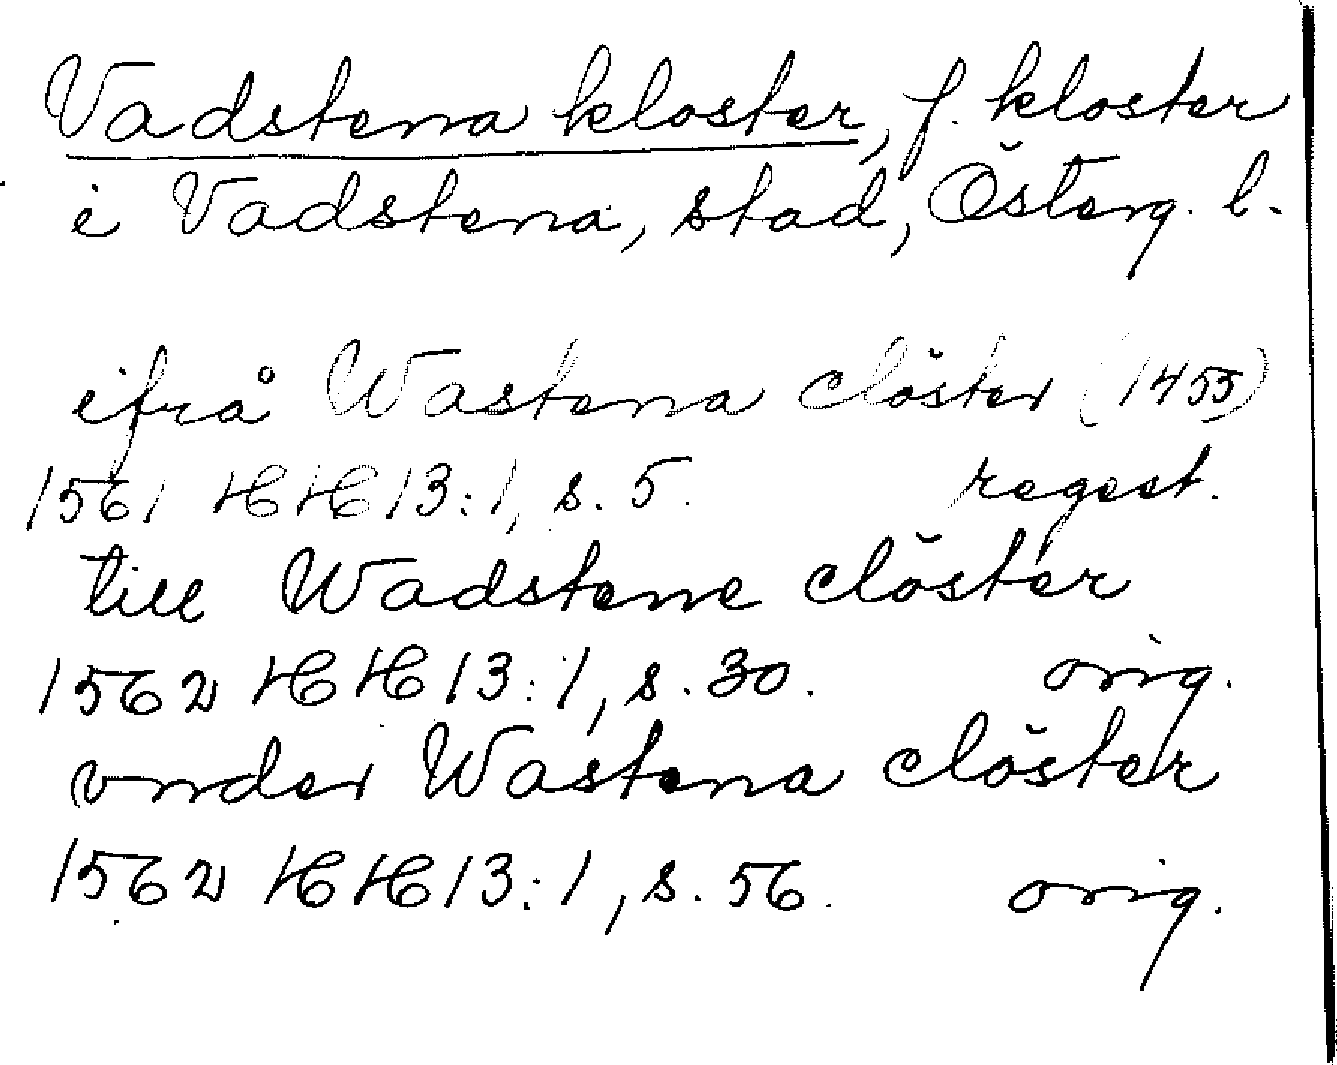 Vadstena kloster, f. kloster
i Vadstena, stad, Österg. l.
ifrå Wastena clöster (1455)
1561 HH 13:1, s. 5. regest.
till Wadstene clöster
1562 HH 13:1, s. 30. orig.
vnder Wastena clöster
1562 HH 13:1, s. 56. orig.